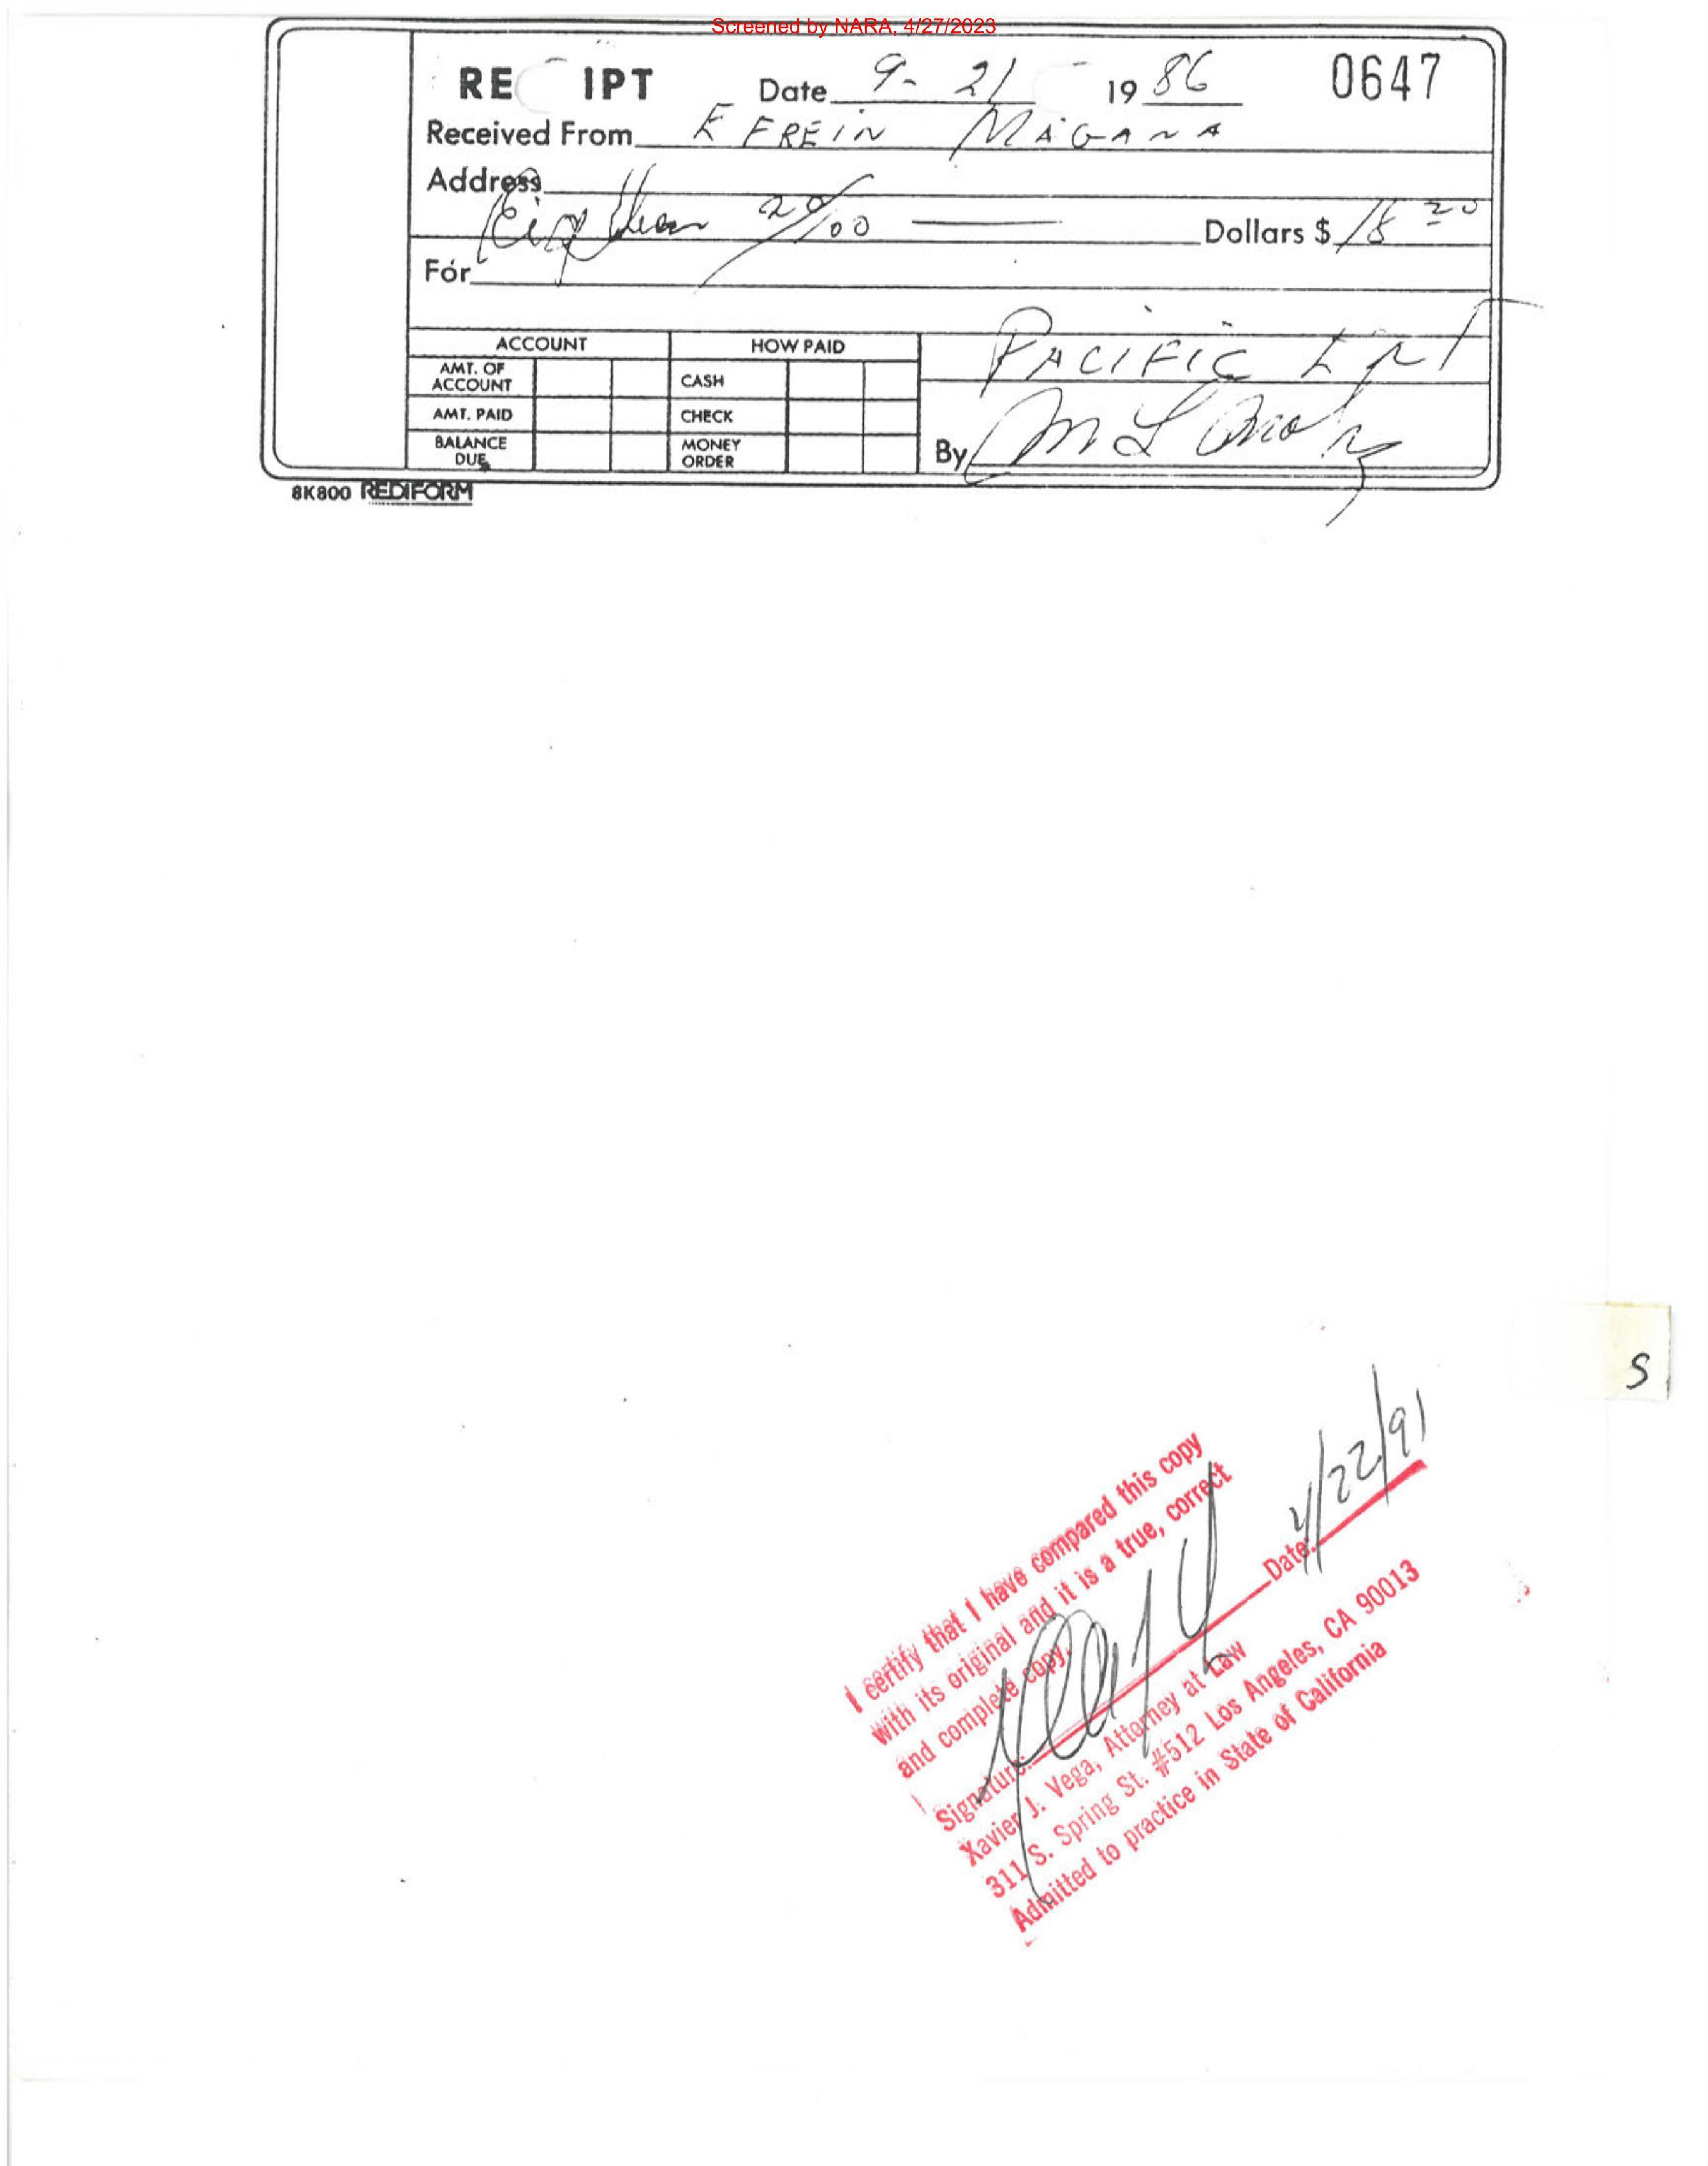 Screened by NARA, 4/27/2023
RE IPT Date 9- 21 19 86 0647
Received From EFREIN MAGANA
Address
Eighteen 20/00 Dollars $ 18 20
For
PACIFIC
ACCOUNT HOW PAID
AMT. OF ACCOUNT CASH
AMT. PAID CHECK
BALANCE DUE MONEY ORDER
By M L
8K800 REDIFORM
S
I certify that I have compared this copy
with its original and it is a true, correct
and complete copy.
Signature: Date: 4/22/91
Xavier J. Vega, Attorney at Law
311 S. Spring St. #512 Los Angeles, CA 90013
Admitted to practice in State of California